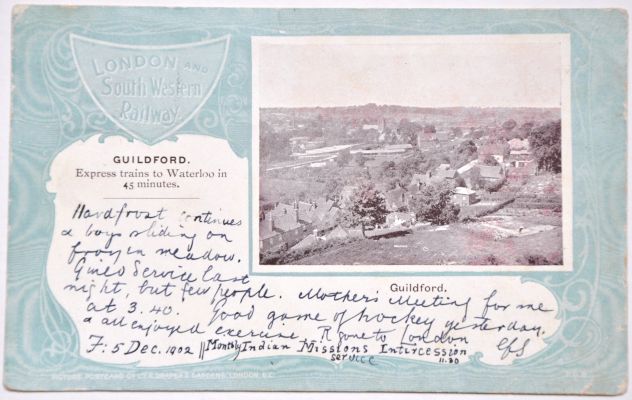 LONDON AND
South Western
Railway.
GUILDFORD.
Express trains to Waterloo in
45 minutes.
Guildford.
Hard frost continues
& boys sliding on
frozen meadow.
Service last
night, but few people. Mother's Meeting for me
at 3.40. Good game of hockey yesterday.
& all enjoyed exercise. R gone to London
F: 5 Dec. 1902 || Monthly Indian Missions Intercession
service
11.30